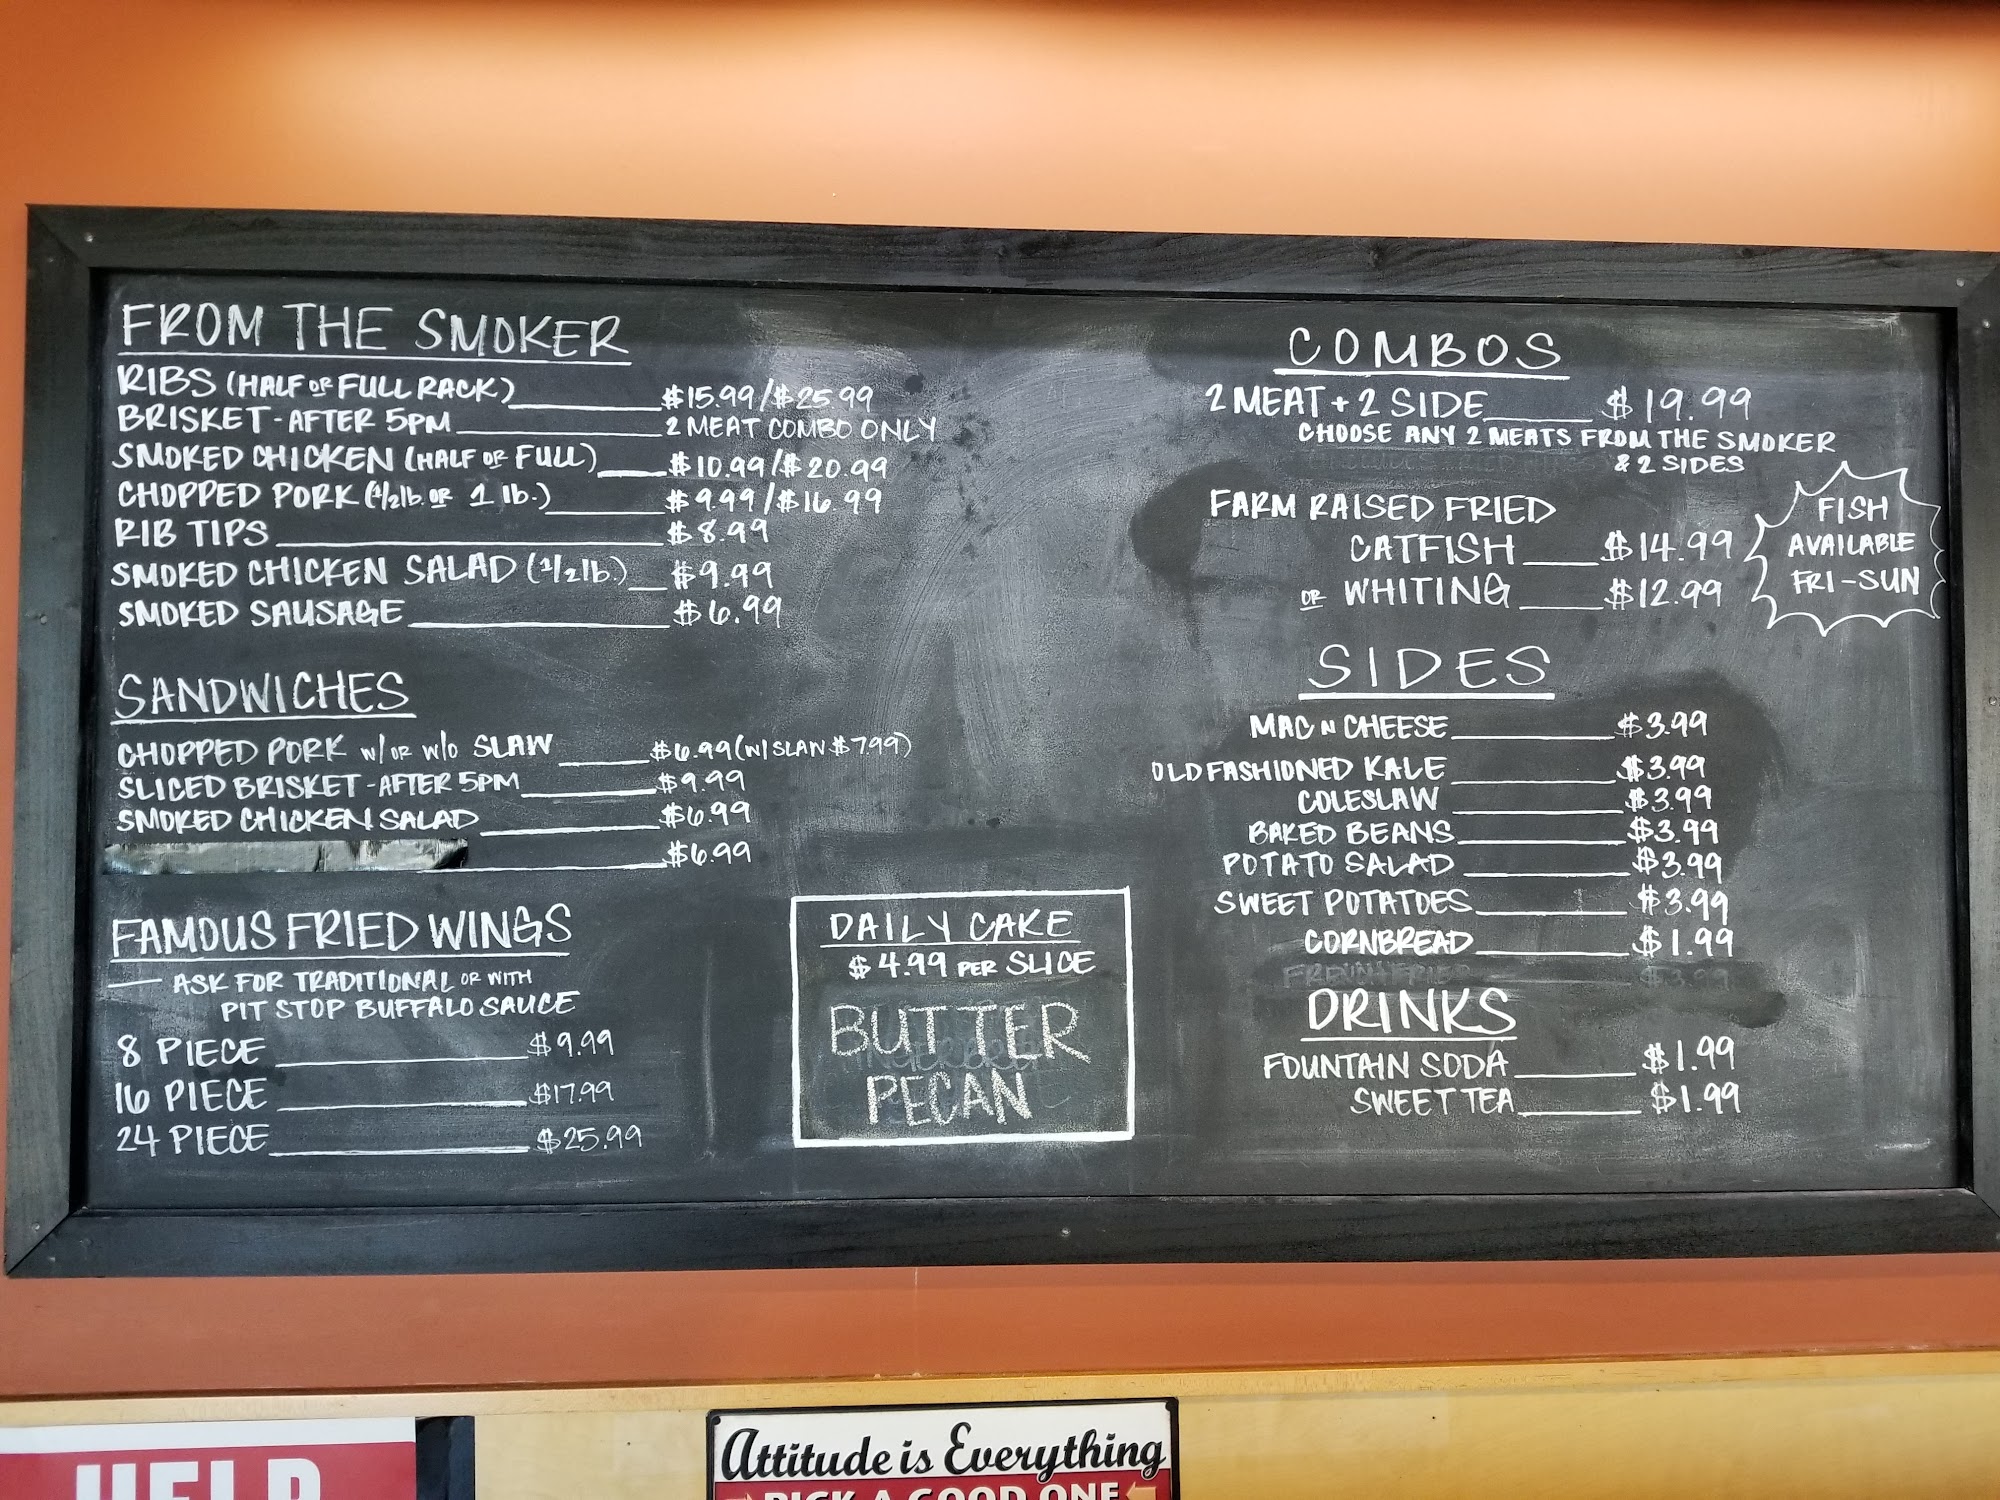 FROM THE SMOKER
RIBS (HALF OR FULL RACK) $15.99/$25.99
BRISKET - AFTER 5PM 2 MEAT COMBO ONLY
SMOKED CHICKEN (HALF OR FULL) $10.99/$20.99
CHOPPED PORK (1/2lb. OR 1 lb.) $9.99/$16.99
RIB TIPS $8.99
SMOKED CHICKEN SALAD (1/2lb.) $9.99
SMOKED SAUSAGE $6.99
SANDWICHES
CHOPPED PORK w/ OR w/o SLAW $6.99 (W/SLAW $7.99)
SLICED BRISKET - AFTER 5PM $9.99
SMOKED CHICKEN SALAD $6.99
$6.99
FAMOUS FRIED WINGS
— ASK FOR TRADITIONAL OR WITH
PIT STOP BUFFALO SAUCE
8 PIECE $9.99
16 PIECE $17.99
24 PIECE $25.99
DAILY CAKE
$4.99 PER SLICE
BUTTER
PECAN
COMBOS
2 MEAT + 2 SIDE $19.99
CHOOSE ANY 2 MEATS FROM THE SMOKER
& 2 SIDES
FARM RAISED FRIED
CATFISH $14.99
OR WHITING $12.99
FISH
AVAILABLE
FRI-SUN
SIDES
MAC N CHEESE $3.99
OLD FASHIONED KALE $3.99
COLESLAW $3.99
BAKED BEANS $3.99
POTATO SALAD $3.99
SWEET POTATOES $3.99
CORNBREAD $1.99
DRINKS
FOUNTAIN SODA $1.99
SWEET TEA $1.99
HELP
Attitude is Everything
PICK A GOOD ONE